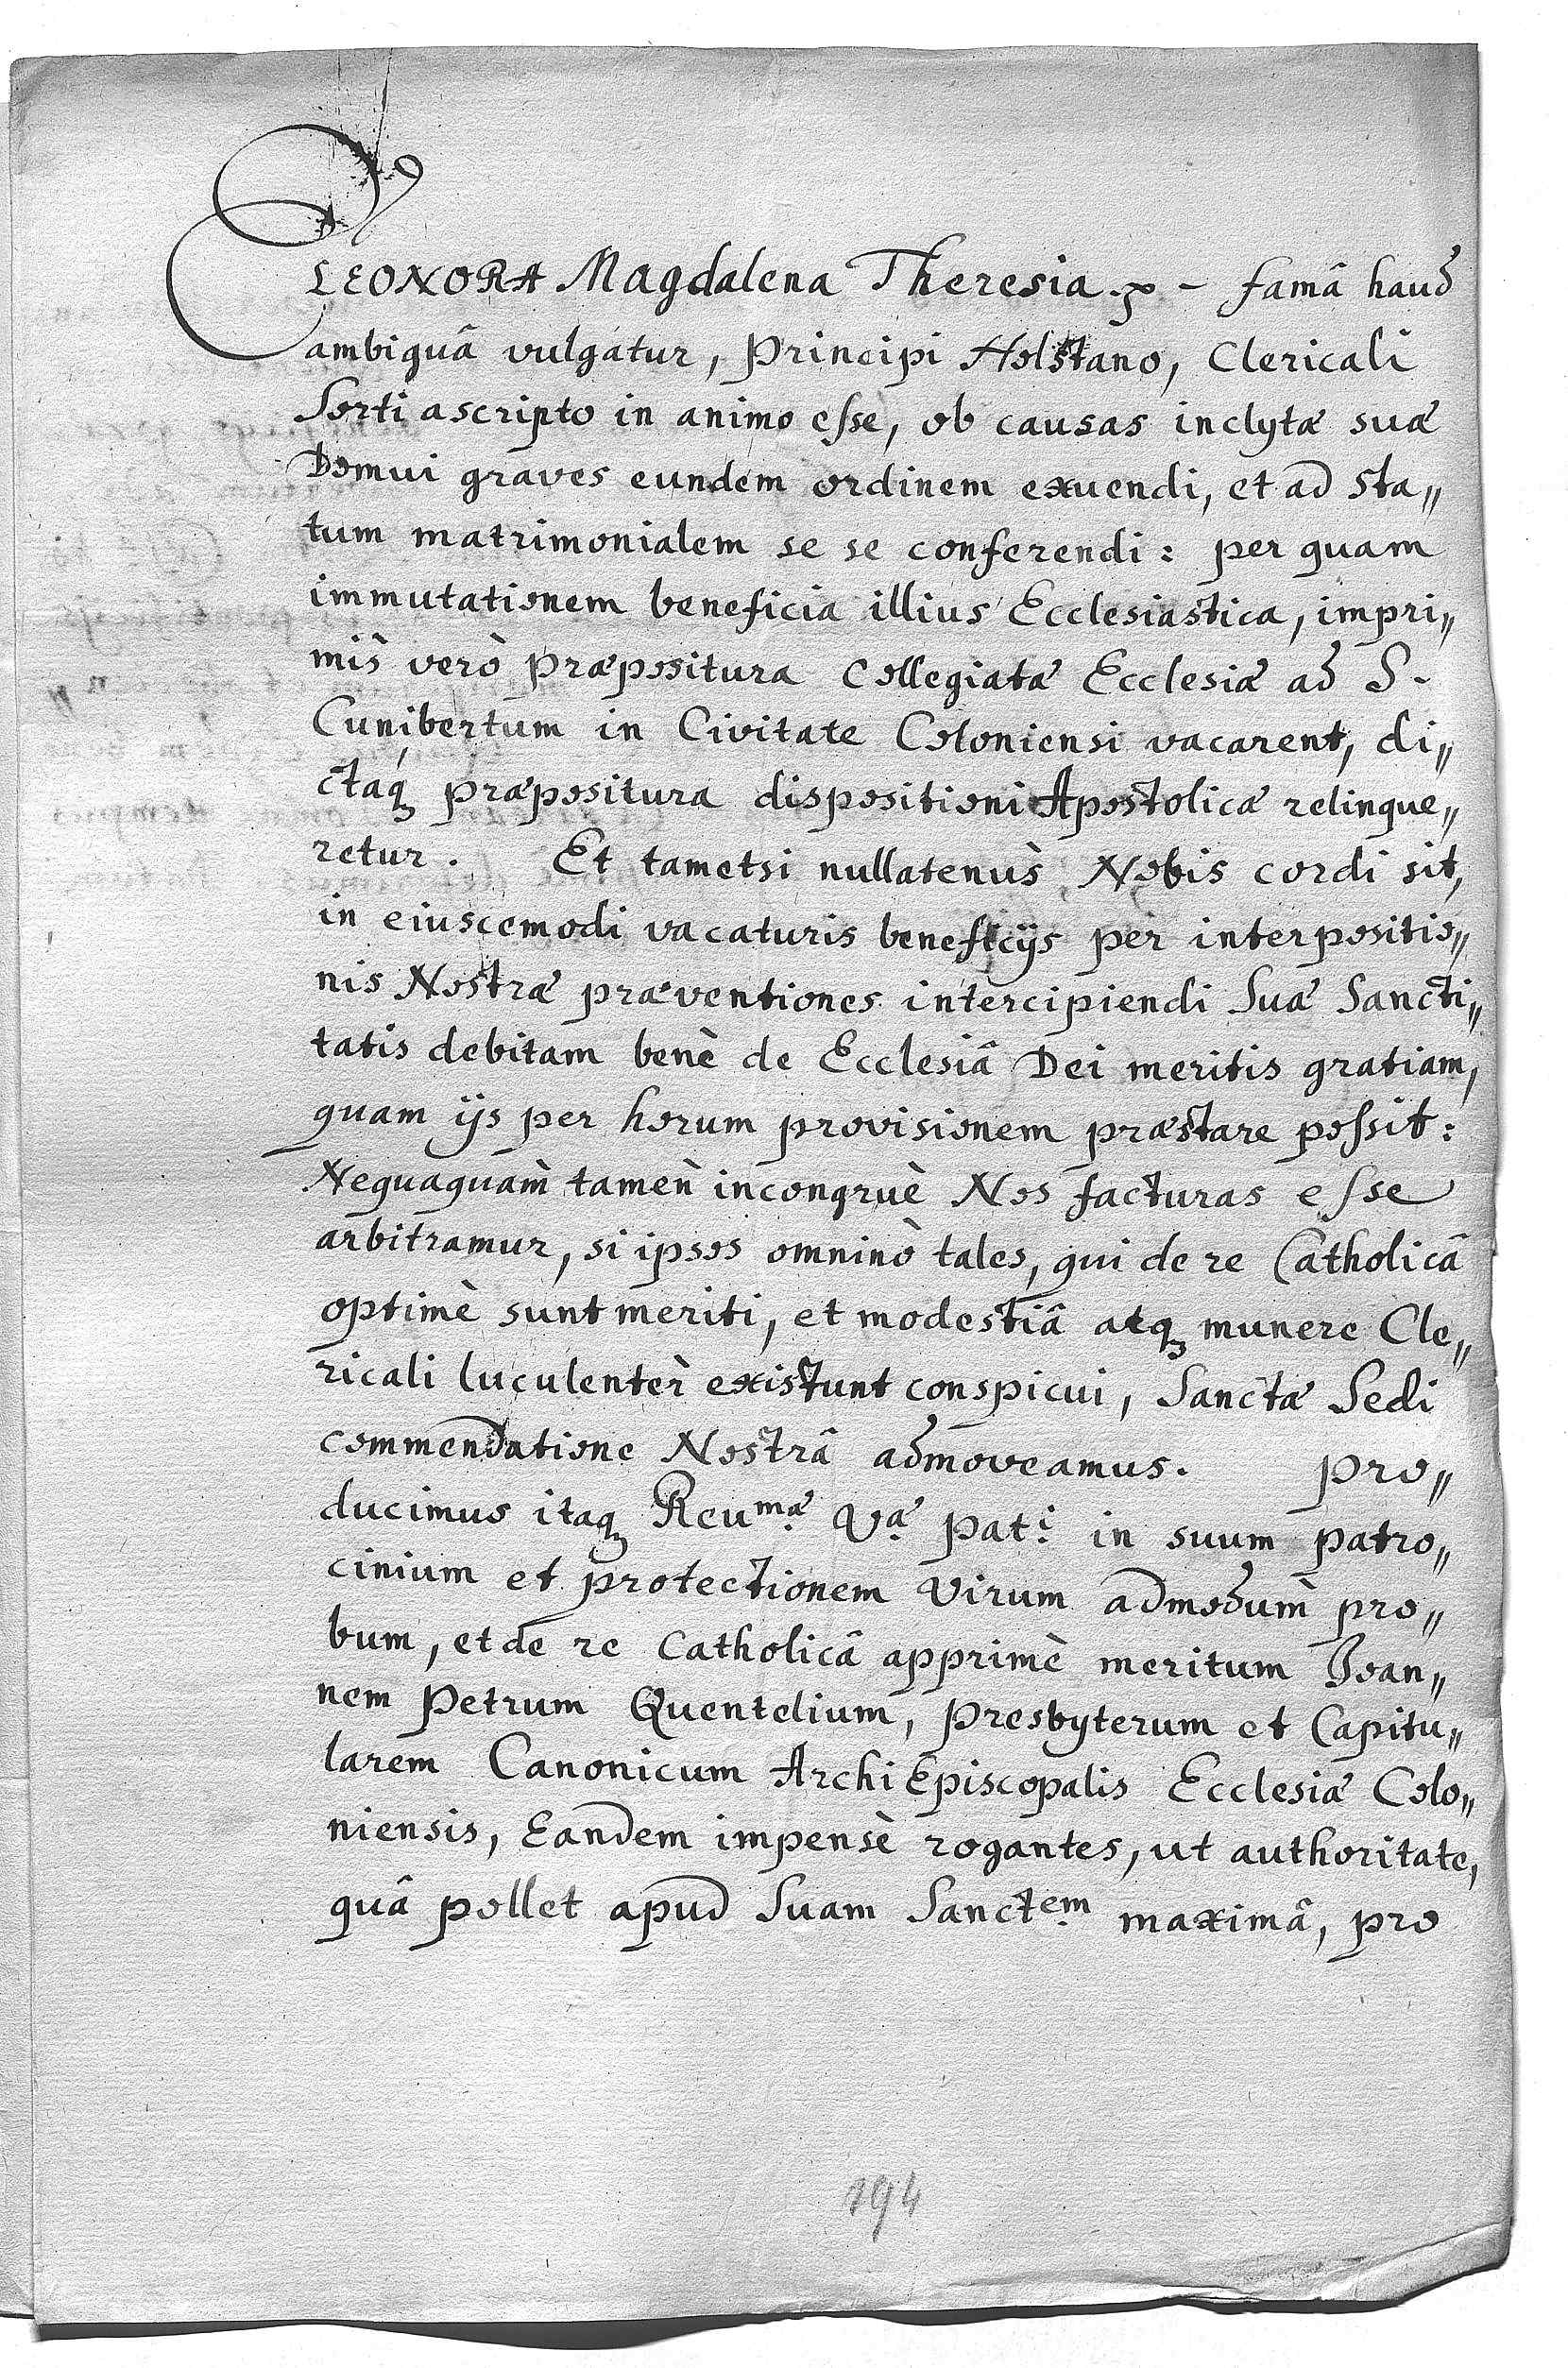 ELEONORA Magdalena Theresia. – famâ haud
ambiguâ vulgatur, Principi Holstano, Clericali
Sorti ascripto in animo esse, ob causas inclytæ suæ
Domui graves eundem ordinem exuendi, et ad sta„
tum matrimonialem se se conferendi: per quam
immutationem beneficia illius Ecclesiastica, impri„
mis verò Præpositura Collegiatæ Ecclesiæ ad S.
Cunibertum in Civitate Coloniensi vacarent, di„
ctaq́ præpositura dispositioni Apostolicæ relinque„
retur. Et tametsi nullatenùs Nobis cordi sit,
in eiuscemodi vacaturis beneficijs per interpositio„
nis Nostræ præventiones intercipiendi Suæ Sancti„
tatis debitam benè de Ecclesiâ Dei meritis gratiam,
quam ijs per horum provisionem præstare possit:
Nequaquam̀ tameǹ incongruè Nos facturas esse
arbitramur, si ipsos omninò tales, qui de re Catholicâ
optimè sunt meriti, et modestiâ atq munere Cle„
ricali luculentèr existunt conspicui, Sanctæ Sedi
commendatione Nostrâ admoveamus. Pro„
ducimus itaq Reumæ Væ Pati in suum patro„
cinium et protectionem Virum admodum̀ pro„
bum, et de re Catholicâ apprimè meritum Joan„
nem Petrum Quentelium, Presbyterum et Capitu„
larem Canonicum ArchiEpiscopalis Ecclesiæ Colo„
niensis, Eandem impensè rogantes, ut authoritate,
quâ pollet apud Suam Sanctem maximâ, pro
194